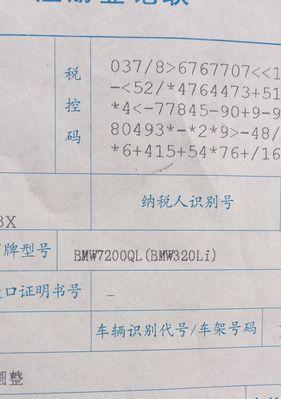 注册登记联
税控码
037/8>6767707<<1
-<52/*4764473+51
*4<-77845-90+9-9
80493*-*2*9>-48/
*6+415+54*76+/16
纳税人识别号
3X
牌型号
BMW7200QL(BMW320Li)
口证明书号
—
车辆识别代号/车架号码
圆整